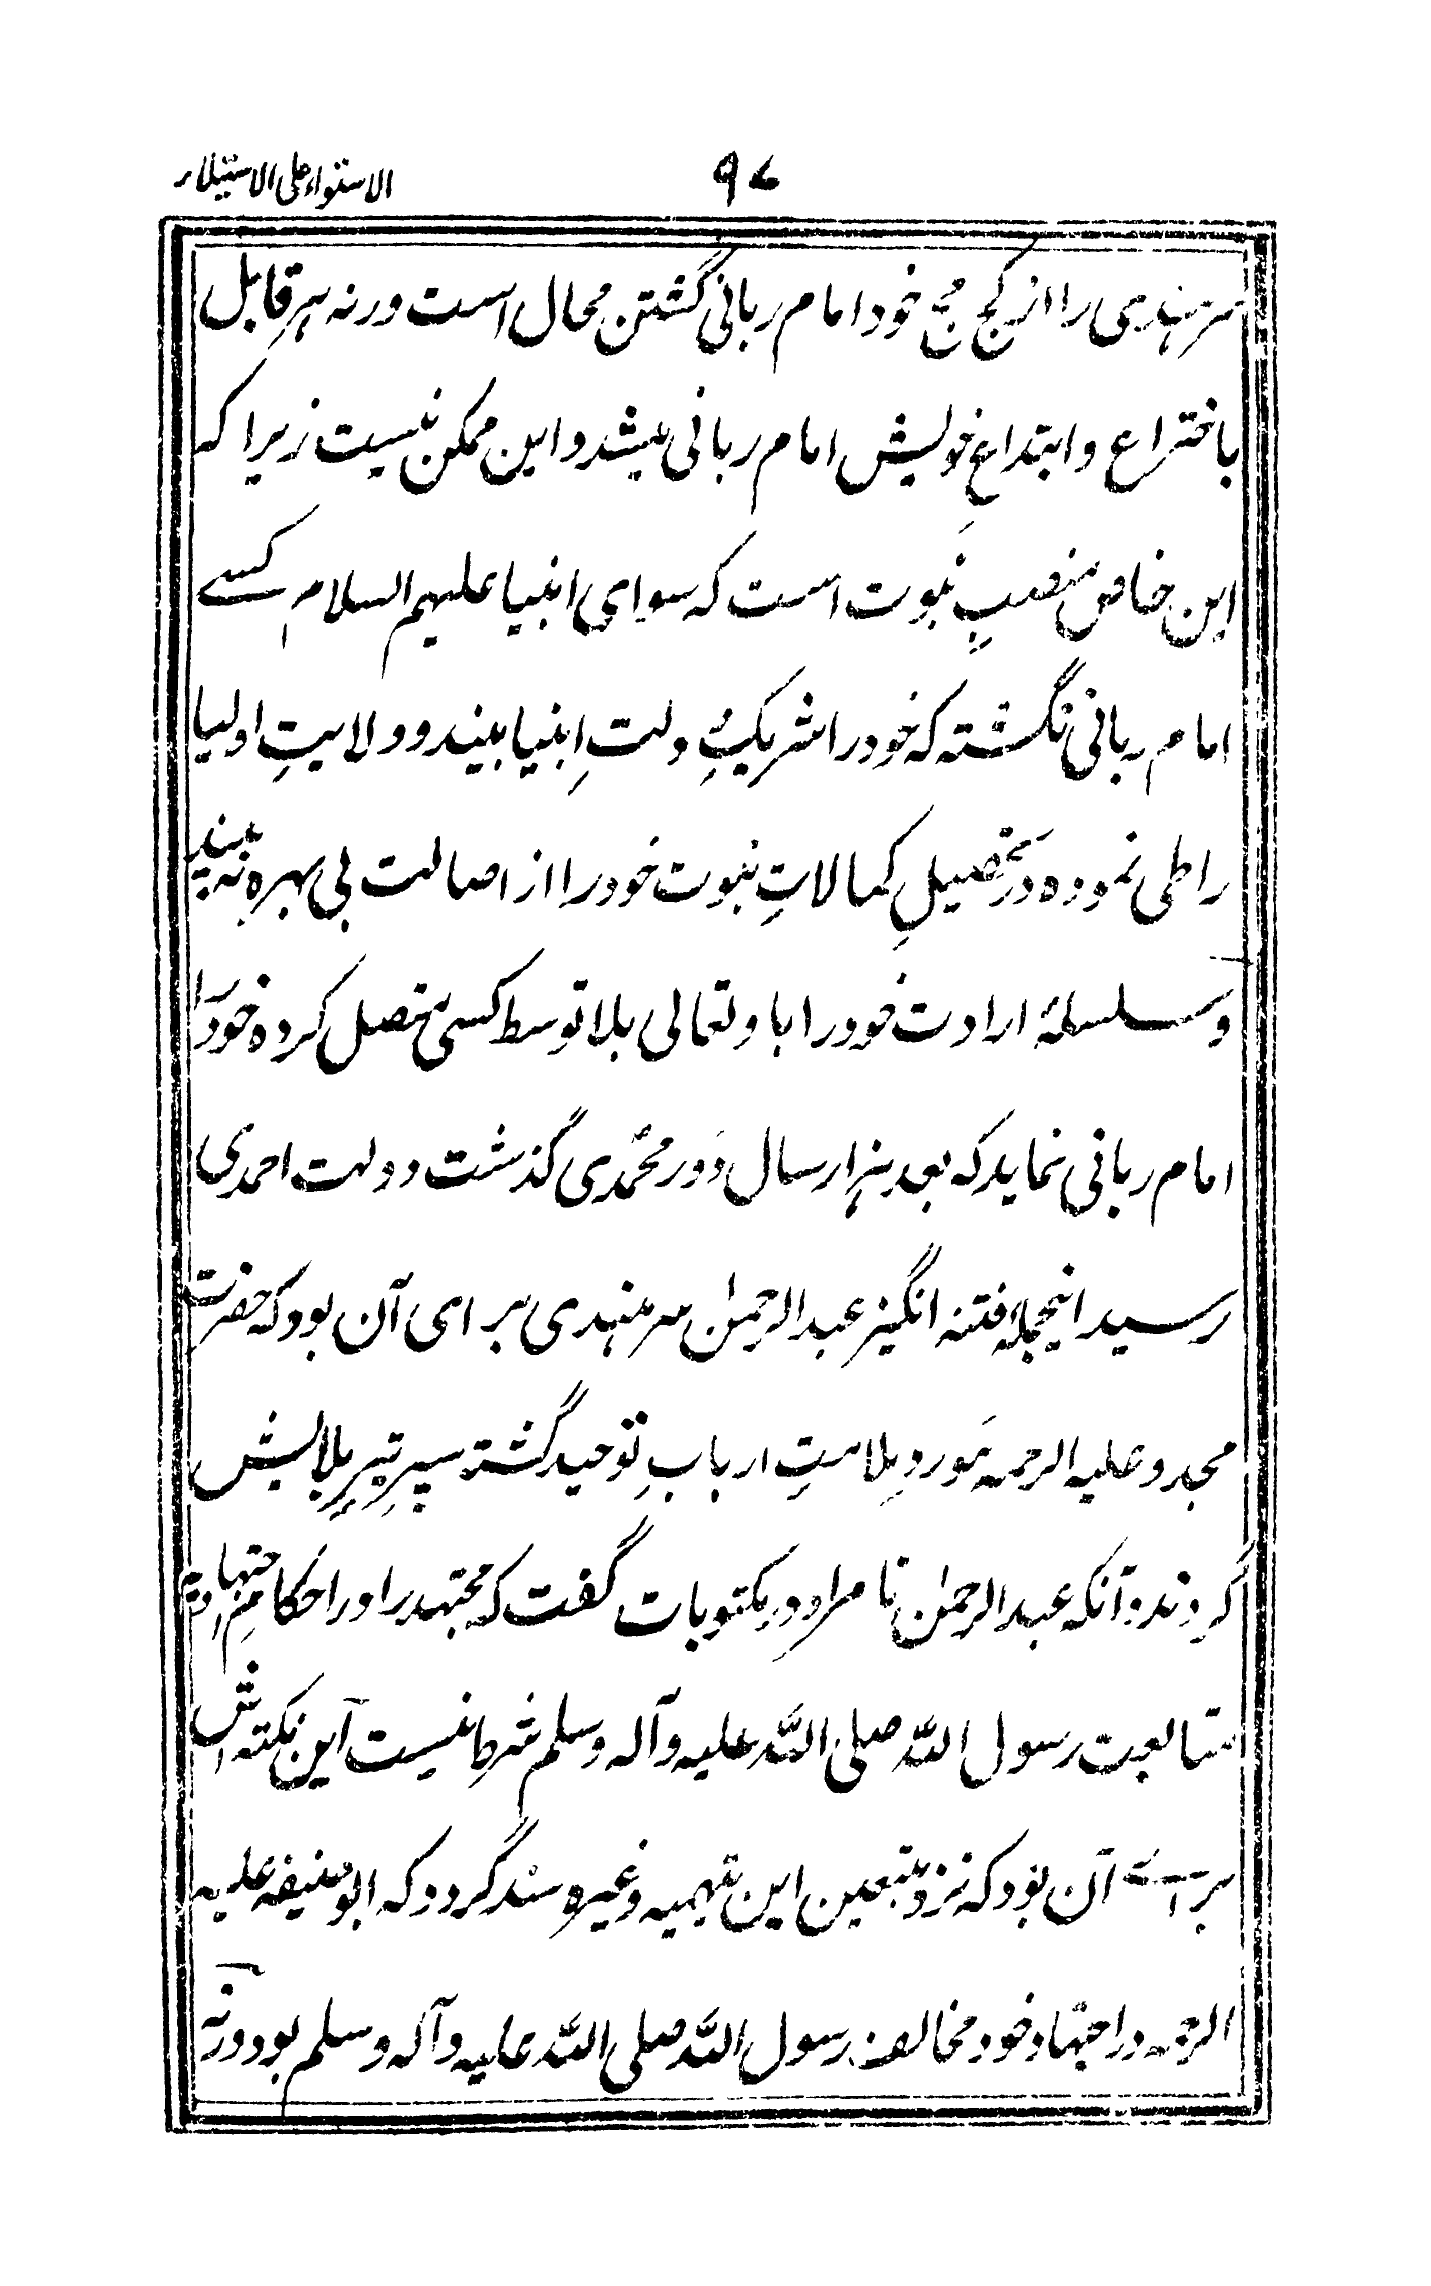 الاستواء علی الاستیلاء
۹۷
سرہندی را از کج مج خود امام ربانی گشتن محال است ورنہ ہر قابل
باختراع و ابتداع خویش امام ربانی میشد و این ممکن نیست زیرا کہ
این خاص منصبِ نبوت است کہ سوای انبیا علیہم السلام کسے
امام ربانی نگشتہ کہ خود را شریکِ دولتِ انبیا بیند و ولایتِ اولیا
را طی نمودہ در تحصیلِ کمالاتِ نبوت خود را از اصالت بی بہرہ نہ بیند
و سلسلۂ ارادت خود را با و تعالی بلا توسط کسی متصل کردہ خود را
امام ربانی نماید کہ بعد ہزار سال دَور محمّدی گذشت و دولت احمدی
رسید اینجملہ فتنہ انگیز عبدالرحمٰن سرہندی برای آن بود کہ حضرت
مجدد علیہ الرحمہ مَوردِ ملامتِ اربابِ توحید گشتہ سپرِ تیرِ بلایش
گردند و آنکہ عبدالرحمٰن نامراد در مکتوبات گفت کہ مجتہد را در احکامِ اجتہادیہ
متابعت رسول اللہ صلی اللہ علیہ وآلہ وسلم شرط نیست این نکتہ اش
براے آن بود کہ نزد متبعین ابن تیمیہ وغیرہ سند گردد کہ ابوحنیفہ علیہ
الرحمہ در اجتہاد خود مخالف رسول اللہ صلی اللہ علیہ وآلہ وسلم بود ورنہ